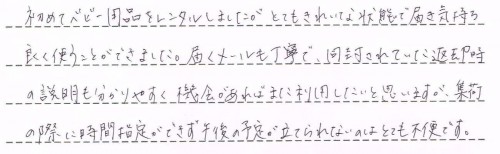 初めてベビー用品をレンタルしましたが とてもきれいな状態で届き気持ち
良く使うことができました。届くメールも丁寧で、同封されていた返却時
の説明も分かりやすく 機会があればまた利用したいと思いますが、集荷
の際に時間指定ができず午後の予定が立てられないのはとても不便です。